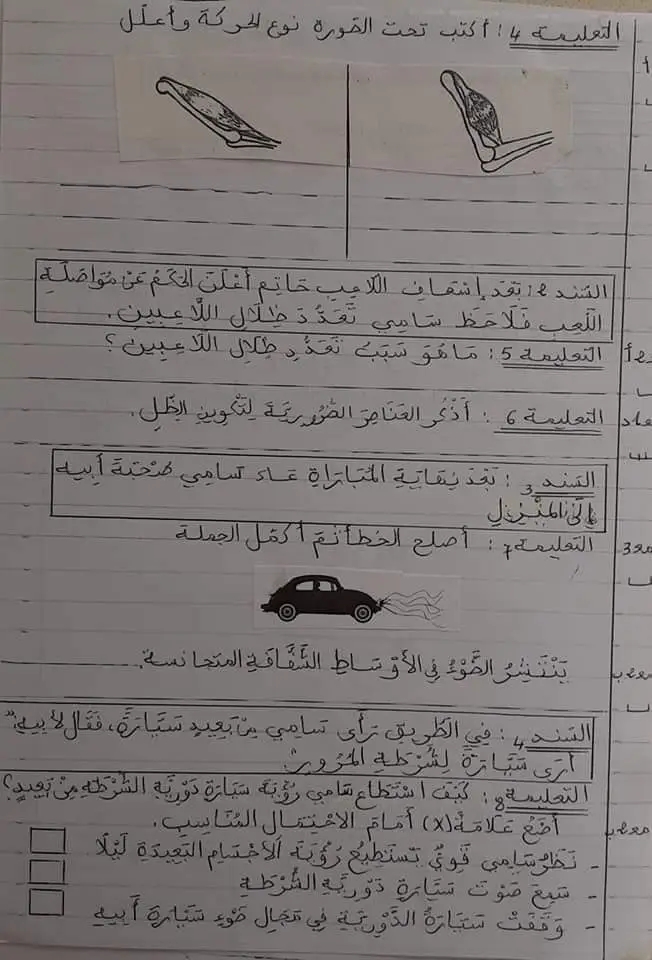 التعليمة 4 : أكتب تحت الصورة نوع الحركة وأعلل
السند 2: بَعْدَ إِسْعَافِ اللاَّعِبِ حَاتِم أَعْلَنَ الحَكَمُ عَنْ مُوَاصَلَةِ
اللَّعِب فَلاَحَظَ سَامِي تَعَدُّدَ ظِلاَلِ اللاَّعِبِينَ.
التعليمة 5 : مَا هُوَ سَبَبُ تَعَدُّدِ ظِلاَلِ اللاَّعِبِينَ ؟
التعليمة 6 : أَذْكُرُ العَنَاصِرَ الضَّرُورِيَّةَ لِتَكْوِينِ الظِّلِ.
السند 3 : بَعْدَ نِهَايَةِ المُبَارَاةِ عَادَ سَامِي صُحْبَةَ أَبِيهِ
إِلَى المَنْزِلِ
التعليمة 7 : أصلح الخطأ ثمّ أكمل الجملة
يَنْتَشِرُ الضَّوْءُ فِي الأَوْسَاطِ الشَّفَّافَةِ المتجانسة.
السند 4 : فِي الطَّرِيقِ رَأَى سَامِي مِنْ بَعِيدٍ سَيَّارَةً، فَقَالَ لأَبِيهِ:"
أَرَى سَيَّارَةً لِشُرْطَةِ المُرُورِ"
التعليمة 8 : كَيْفَ اسْتَطَاعَ سَامِي رُؤْيَةَ سَيَّارَةِ دَوْرِيَّةِ الشُّرْطَةِ مِنْ بَعِيدٍ؟
أَضَعُ عَلاَمَةَ (x) أَمَامَ الاِحْتِمَالِ المُنَاسِبِ.
- نَظَرُ سَامِي قَوِيٌّ يَسْتَطِيعُ رُؤْيَةَ الأَجْسَامِ البَعِيدَةِ لَيْلاً
- سَمِعَ صَوْتَ سَيَّارَةِ دَوْرِيَّةِ الشُّرْطَةِ
- وَقَفَتْ سَيَّارَةُ الدَّوْرِيَّةِ فِي مَجَالِ ضَوْءِ سَيَّارَةِ أَبِيهِ